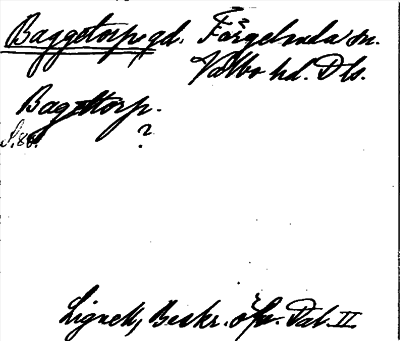 Baggetorp, gd. Färgelanda sn.
Valbo hd. Dls.
Bagetorp.
S. 80. ?
Lignell, Beskr. öfv. Dal. II